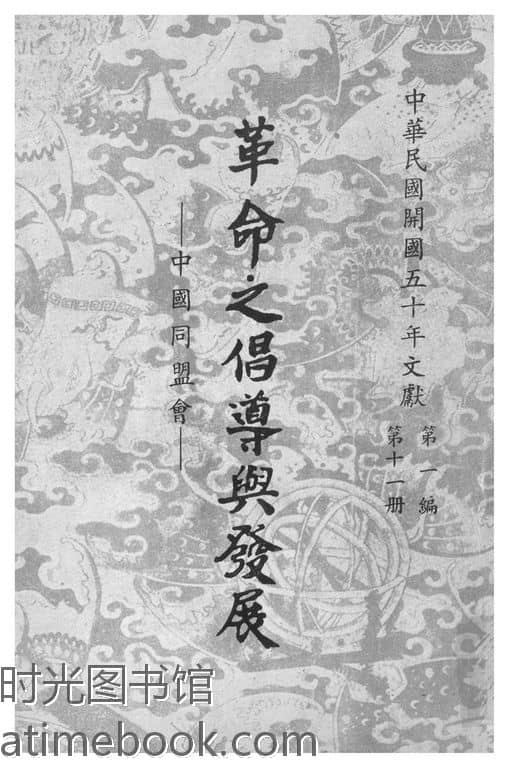 中華民國開國五十年文獻
第一編
第十一册
革命之倡導與發展
—中國同盟會—
时光图书馆
atimebook.com